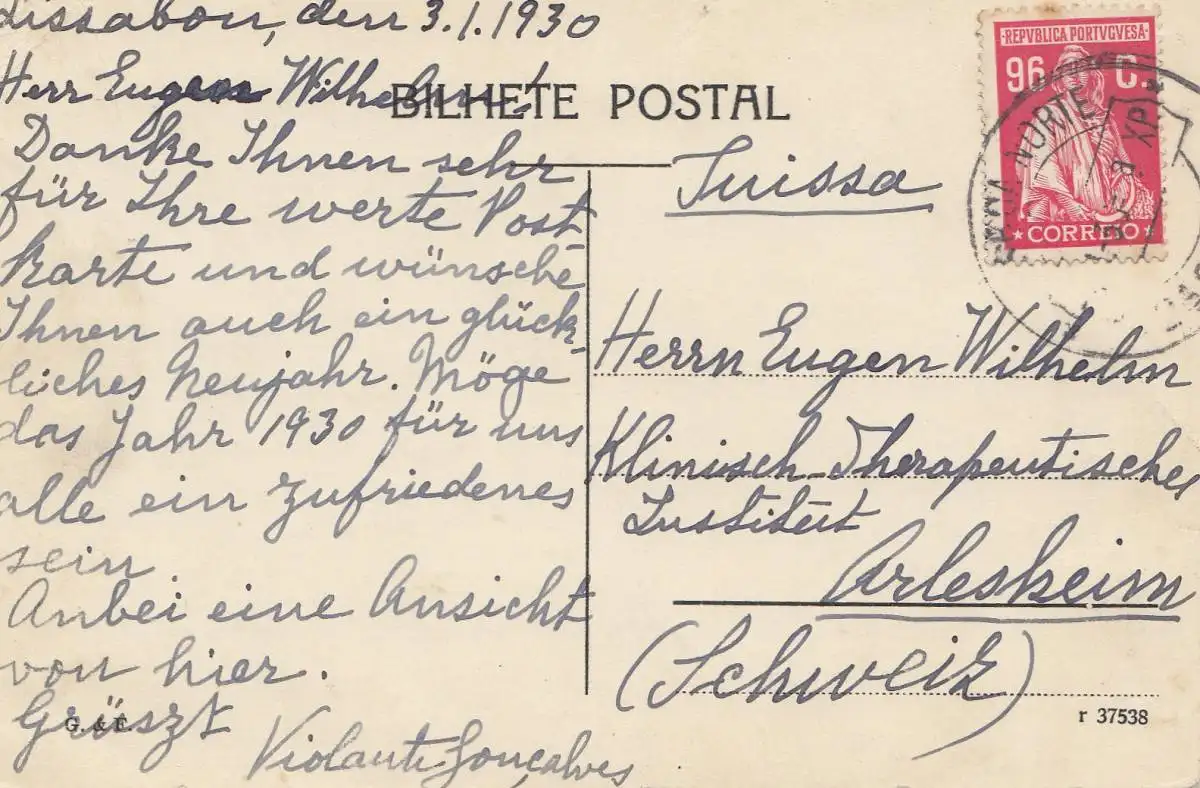 Lissabon, den 3.1.1930
Herr Eugen Wilhelm!
Danke Ihnen sehr
für Ihre werte Post-
karte und wünsche
Ihnen auch ein glück-
liches Neujahr. Möge
das Jahr 1930 für uns
alle ein zufriedenes
sein
Anbei eine Ansicht
von hier.
Grüszt
Violante Gonçalves
G. & F.
BILHETE POSTAL
REPVBLICA PORTVGVESA
96 C.
CORREIO
NORTE
Suissa
Herrn Eugen Wilhelm
Klinisch-Therapeutisches
Institut
Arlesheim
(Schweiz)
r 37538